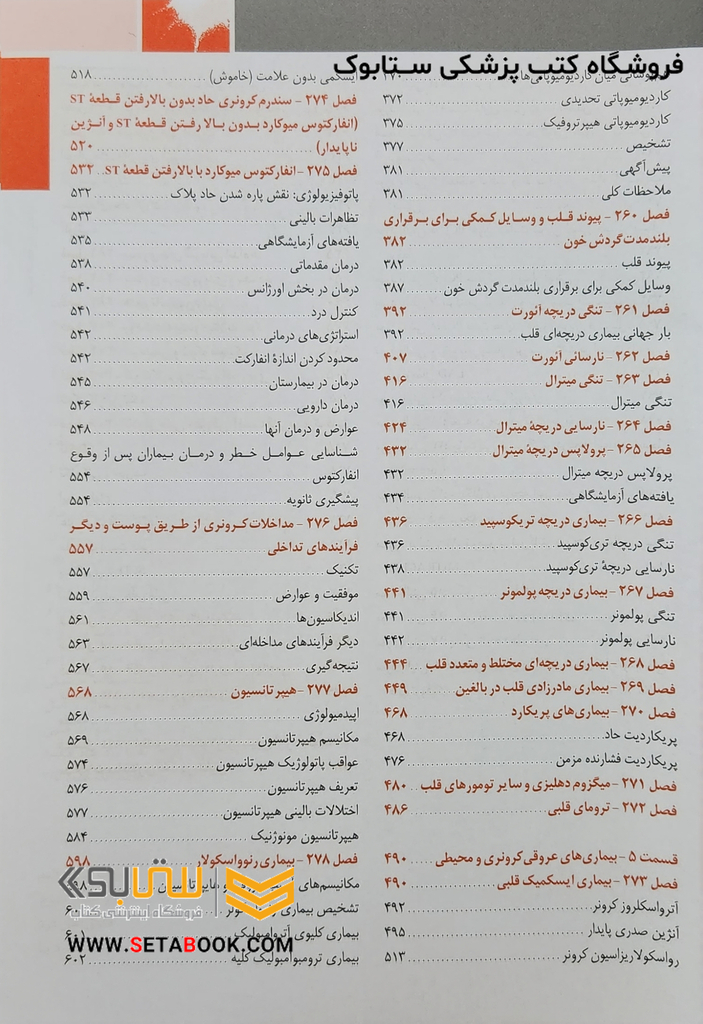 فروشگاه کتب پزشکی ستابوک
میان کاردیومیوپاتی‌ها ۳۷۰
کاردیومیوپاتی تحدیدی ۳۷۲
کاردیومیوپاتی هیپرتروفیک ۳۷۵
تشخیص ۳۷۷
پیش‌آگهی ۳۸۱
ملاحظات کلی ۳۸۱
فصل ۲۶۰ - پیوند قلب و وسایل کمکی برای برقراری
بلندمدت گردش خون ۳۸۲
پیوند قلب ۳۸۲
وسایل کمکی برای برقراری بلندمدت گردش خون ۳۸۷
فصل ۲۶۱ - تنگی دریچه آئورت ۳۹۲
بار جهانی بیماری دریچه‌ای قلب ۳۹۲
فصل ۲۶۲ - نارسائی آئورت ۴۰۷
فصل ۲۶۳ - تنگی میترال ۴۱۶
تنگی میترال ۴۱۶
فصل ۲۶۴ - نارسایی دریچهٔ میترال ۴۲۴
فصل ۲۶۵ - پرولاپس دریچهٔ میترال ۴۳۲
پرولاپس دریچه میترال ۴۳۲
یافته‌های آزمایشگاهی ۴۳۴
فصل ۲۶۶ - بیماری دریچه تریکوسپید ۴۳۶
تنگی دریچه تری‌کوسپید ۴۳۶
نارسایی دریچهٔ تری‌کوسپید ۴۳۸
فصل ۲۶۷ - بیماری دریچه پولمونر ۴۴۱
تنگی پولمونر ۴۴۱
نارسایی پولمونر ۴۴۲
فصل ۲۶۸ - بیماری دریچه‌ای مختلط و متعدد قلب ۴۴۴
فصل ۲۶۹ - بیماری مادرزادی قلب در بالغین ۴۴۹
فصل ۲۷۰ - بیماری‌های پریکارد ۴۶۸
پریکاردیت حاد ۴۶۸
پریکاردیت فشارنده مزمن ۴۷۶
فصل ۲۷۱ - میگزوم دهلیزی و سایر تومورهای قلب ۴۸۰
فصل ۲۷۲ - ترومای قلبی ۴۸۶
قسمت ۵ - بیماری‌های عروقی کرونری و محیطی ۴۹۰
فصل ۲۷۳ - بیماری ایسکمیک قلبی ۴۹۰
آترواسکلروز کرونر ۴۹۲
آنژین صدری پایدار ۴۹۵
رواسکولاریزاسیون کرونر ۵۱۳
ایسکمی بدون علامت (خاموش) ۵۱۸
فصل ۲۷۴ - سندرم کرونری حاد بدون بالارفتن قطعهٔ ST
(انفارکتوس میوکارد بدون بالا رفتن قطعهٔ ST و آنژین
ناپایدار) ۵۲۰
فصل ۲۷۵ - انفارکتوس میوکارد با بالارفتن قطعهٔ ST ۵۳۲
پاتوفیزیولوژی: نقش پاره شدن حاد پلاک ۵۳۲
تظاهرات بالینی ۵۳۳
یافته‌های آزمایشگاهی ۵۳۵
درمان مقدماتی ۵۳۸
درمان در بخش اورژانس ۵۴۰
کنترل درد ۵۴۱
استراتژی‌های درمانی ۵۴۲
محدود کردن اندازهٔ انفارکت ۵۴۲
درمان در بیمارستان ۵۴۵
درمان دارویی ۵۴۶
عوارض و درمان آنها ۵۴۸
شناسایی عوامل خطر و درمان بیماران پس از وقوع
انفارکتوس ۵۵۴
پیشگیری ثانویه ۵۵۴
فصل ۲۷۶ - مداخلات کرونری از طریق پوست و دیگر
فرآیندهای تداخلی ۵۵۷
تکنیک ۵۵۷
موفقیت و عوارض ۵۵۹
اندیکاسیون‌ها ۵۶۱
دیگر فرآیندهای مداخله‌ای ۵۶۳
نتیجه‌گیری ۵۶۷
فصل ۲۷۷ - هیپرتانسیون ۵۶۸
اپیدمیولوژی ۵۶۸
مکانیسم هیپرتانسیون ۵۶۹
عواقب پاتولوژیک هیپرتانسیون ۵۷۴
تعریف هیپرتانسیون ۵۷۶
اختلالات بالینی هیپرتانسیون ۵۷۷
هیپرتانسیون مونوژنیک ۵۸۴
فصل ۲۷۸ - بیماری رنوواسکولار ۵۹۸
مکانیسم‌های
تشخیص بیماری
بیماری کلیوی آتروامبولیک ۶۰۱
بیماری ترومبوآمبولیک کلیه ۶۰۲
ستابوک
فروشگاه اینترنتی کتاب
WWW.SETABOOK.COM